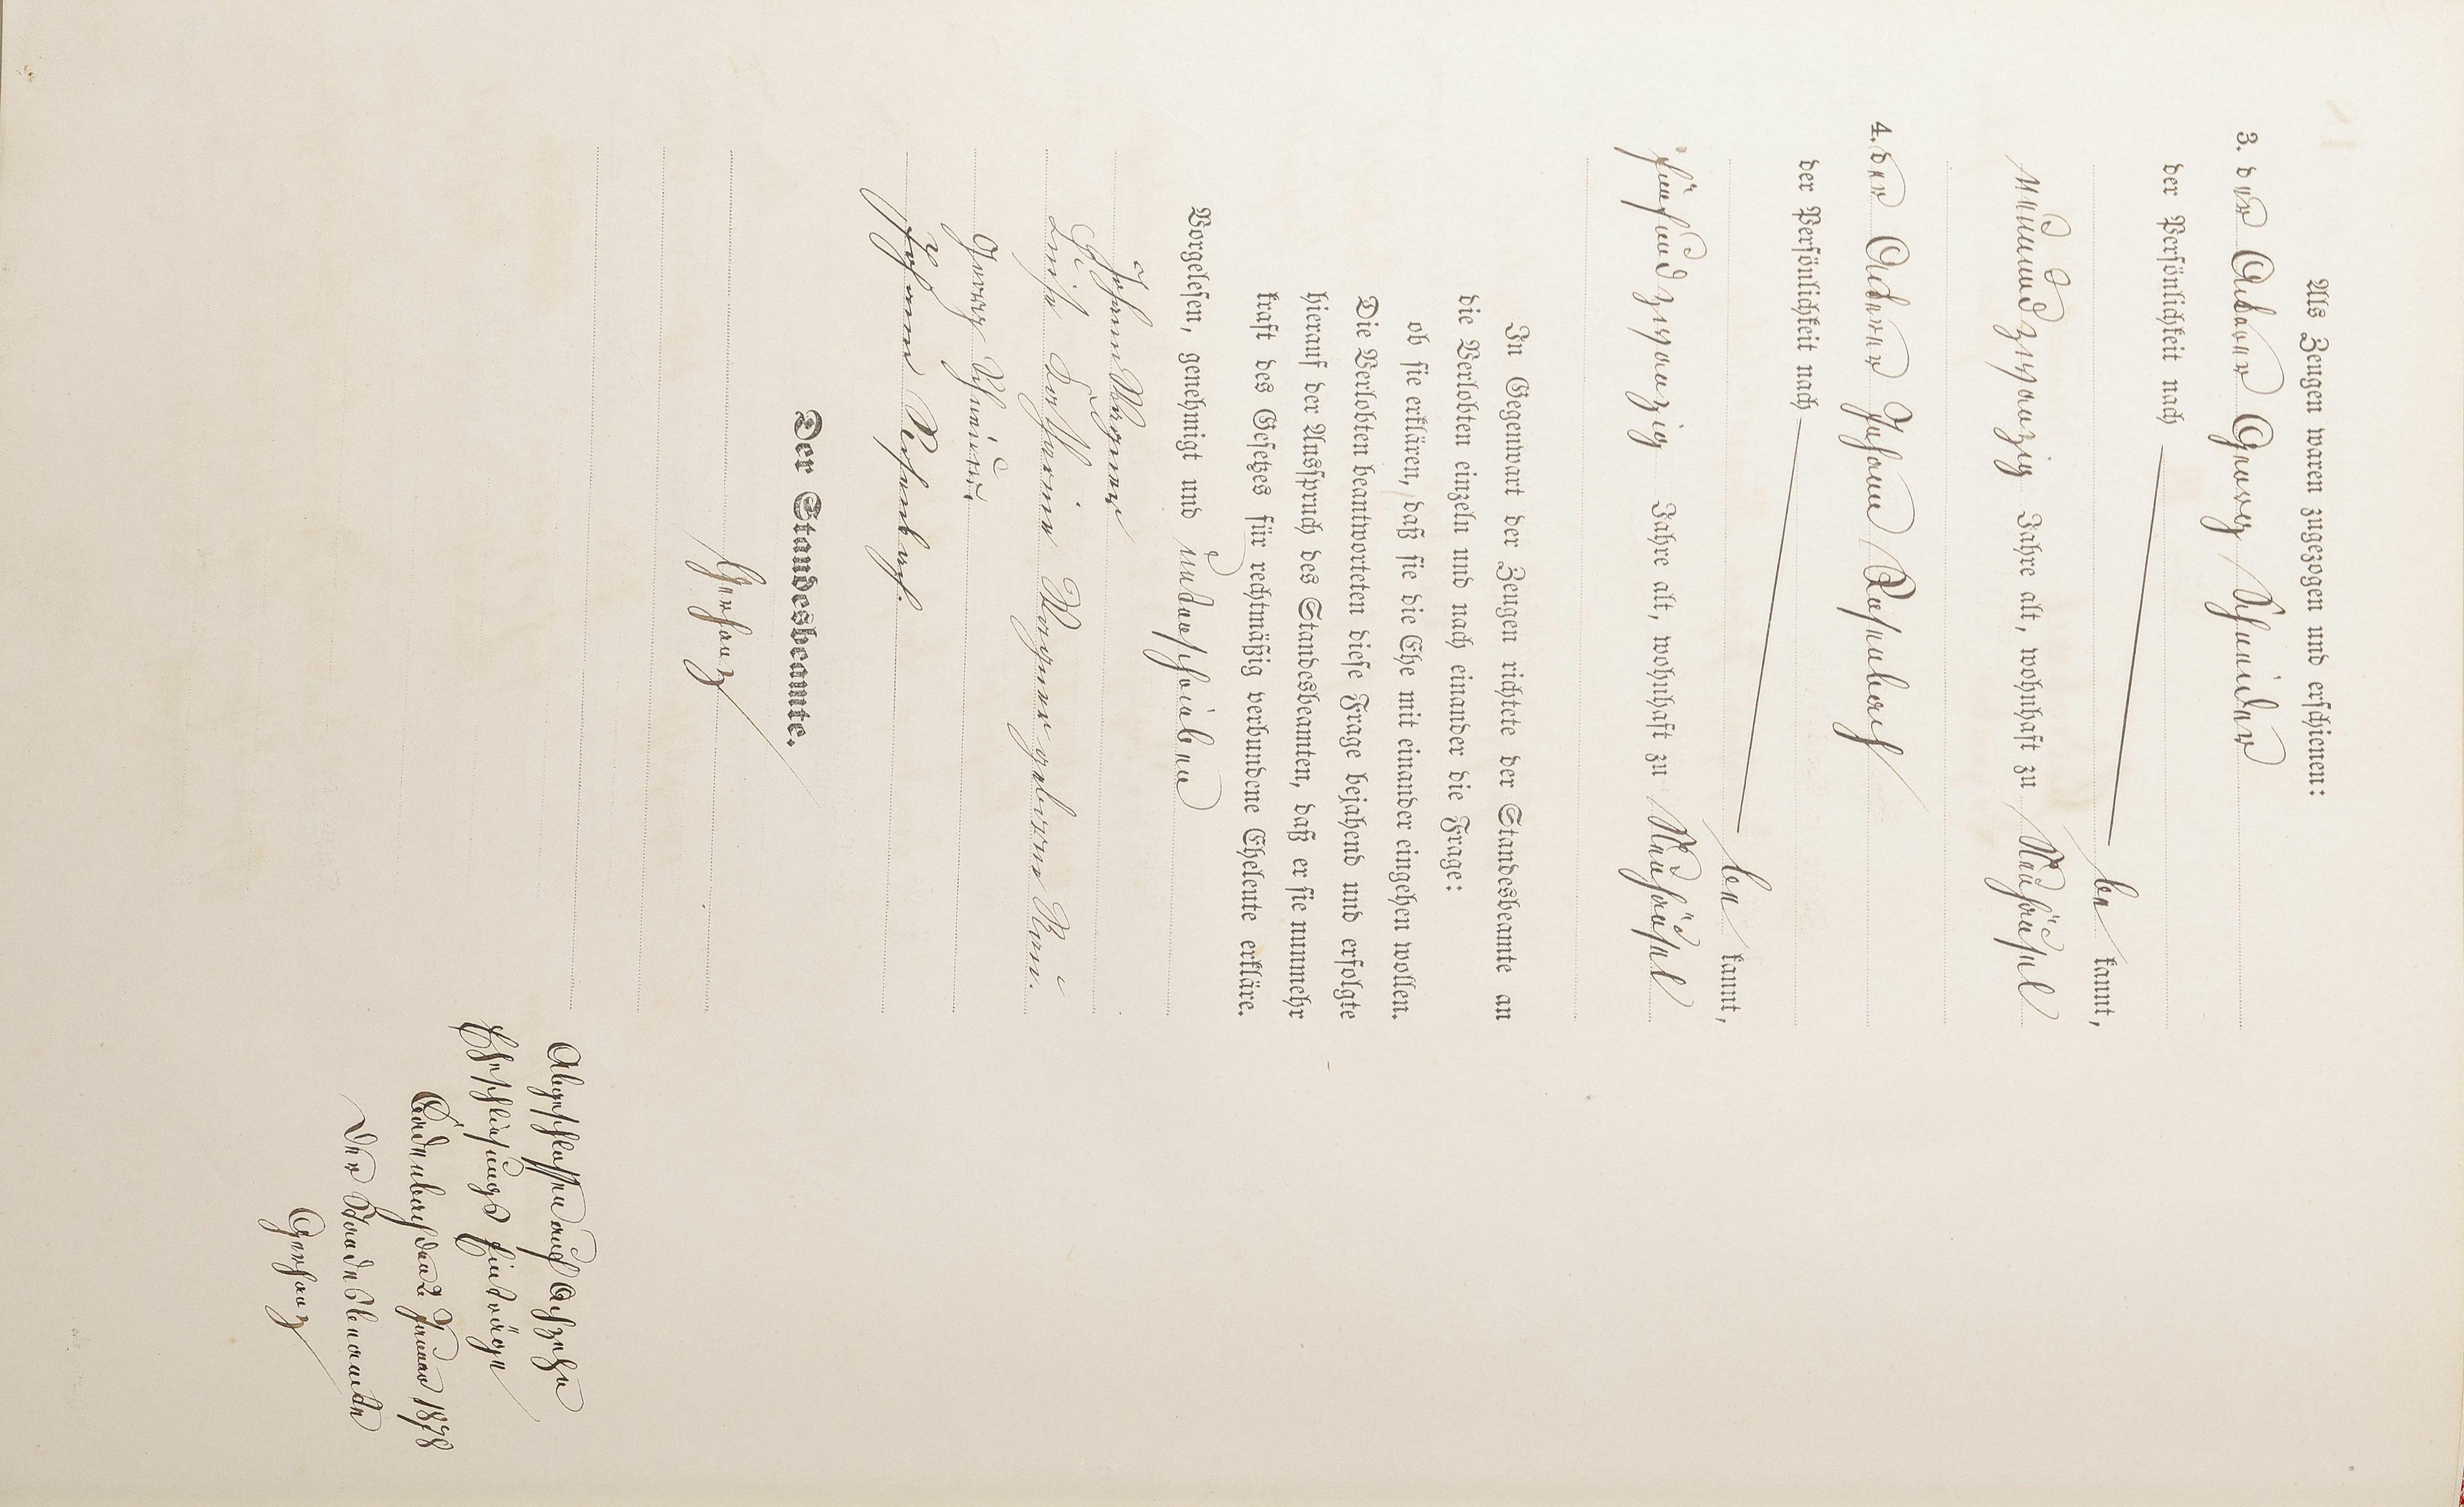 Als Zeugen waren zugezogen und erschienen:
3. der Ackerer Georg Schneider
der Persönlichkeit nach
be kannt,
neunundzwanzig Jahre alt, wohnhaft zu Neuhäusel
4. der Ackerer Johann
der Persönlichkeit nach
be kannt,
fünfundzwanzig Jahre alt, wohnhaft zu Neuhäusel
In Gegenwart der Zeugen richtete der Standesbeamte an
die Verlobten einzeln und nach einander die Frage:
ob sie erklären, daß sie die Ehe mit einander eingehen wollen.
Die Verlobten beantworteten diese Frage bejahend und erfolgte
hierauf der Ausspruch des Standesbeamten, daß er sie nunmehr
kraft des Gesetzes für rechtmäßig verbundene Eheleute erkläre.
Vorgelesen, genehmigt und unterschrieben
Johann Wagner
Katharina Wagner geborene
Georg Schneider
Johann
Der Standesbeamte.
Abgeschlossen auf Achtzehn
Eheschließungs Einträge
den 2. Januar 1878
Der Standesbeamte